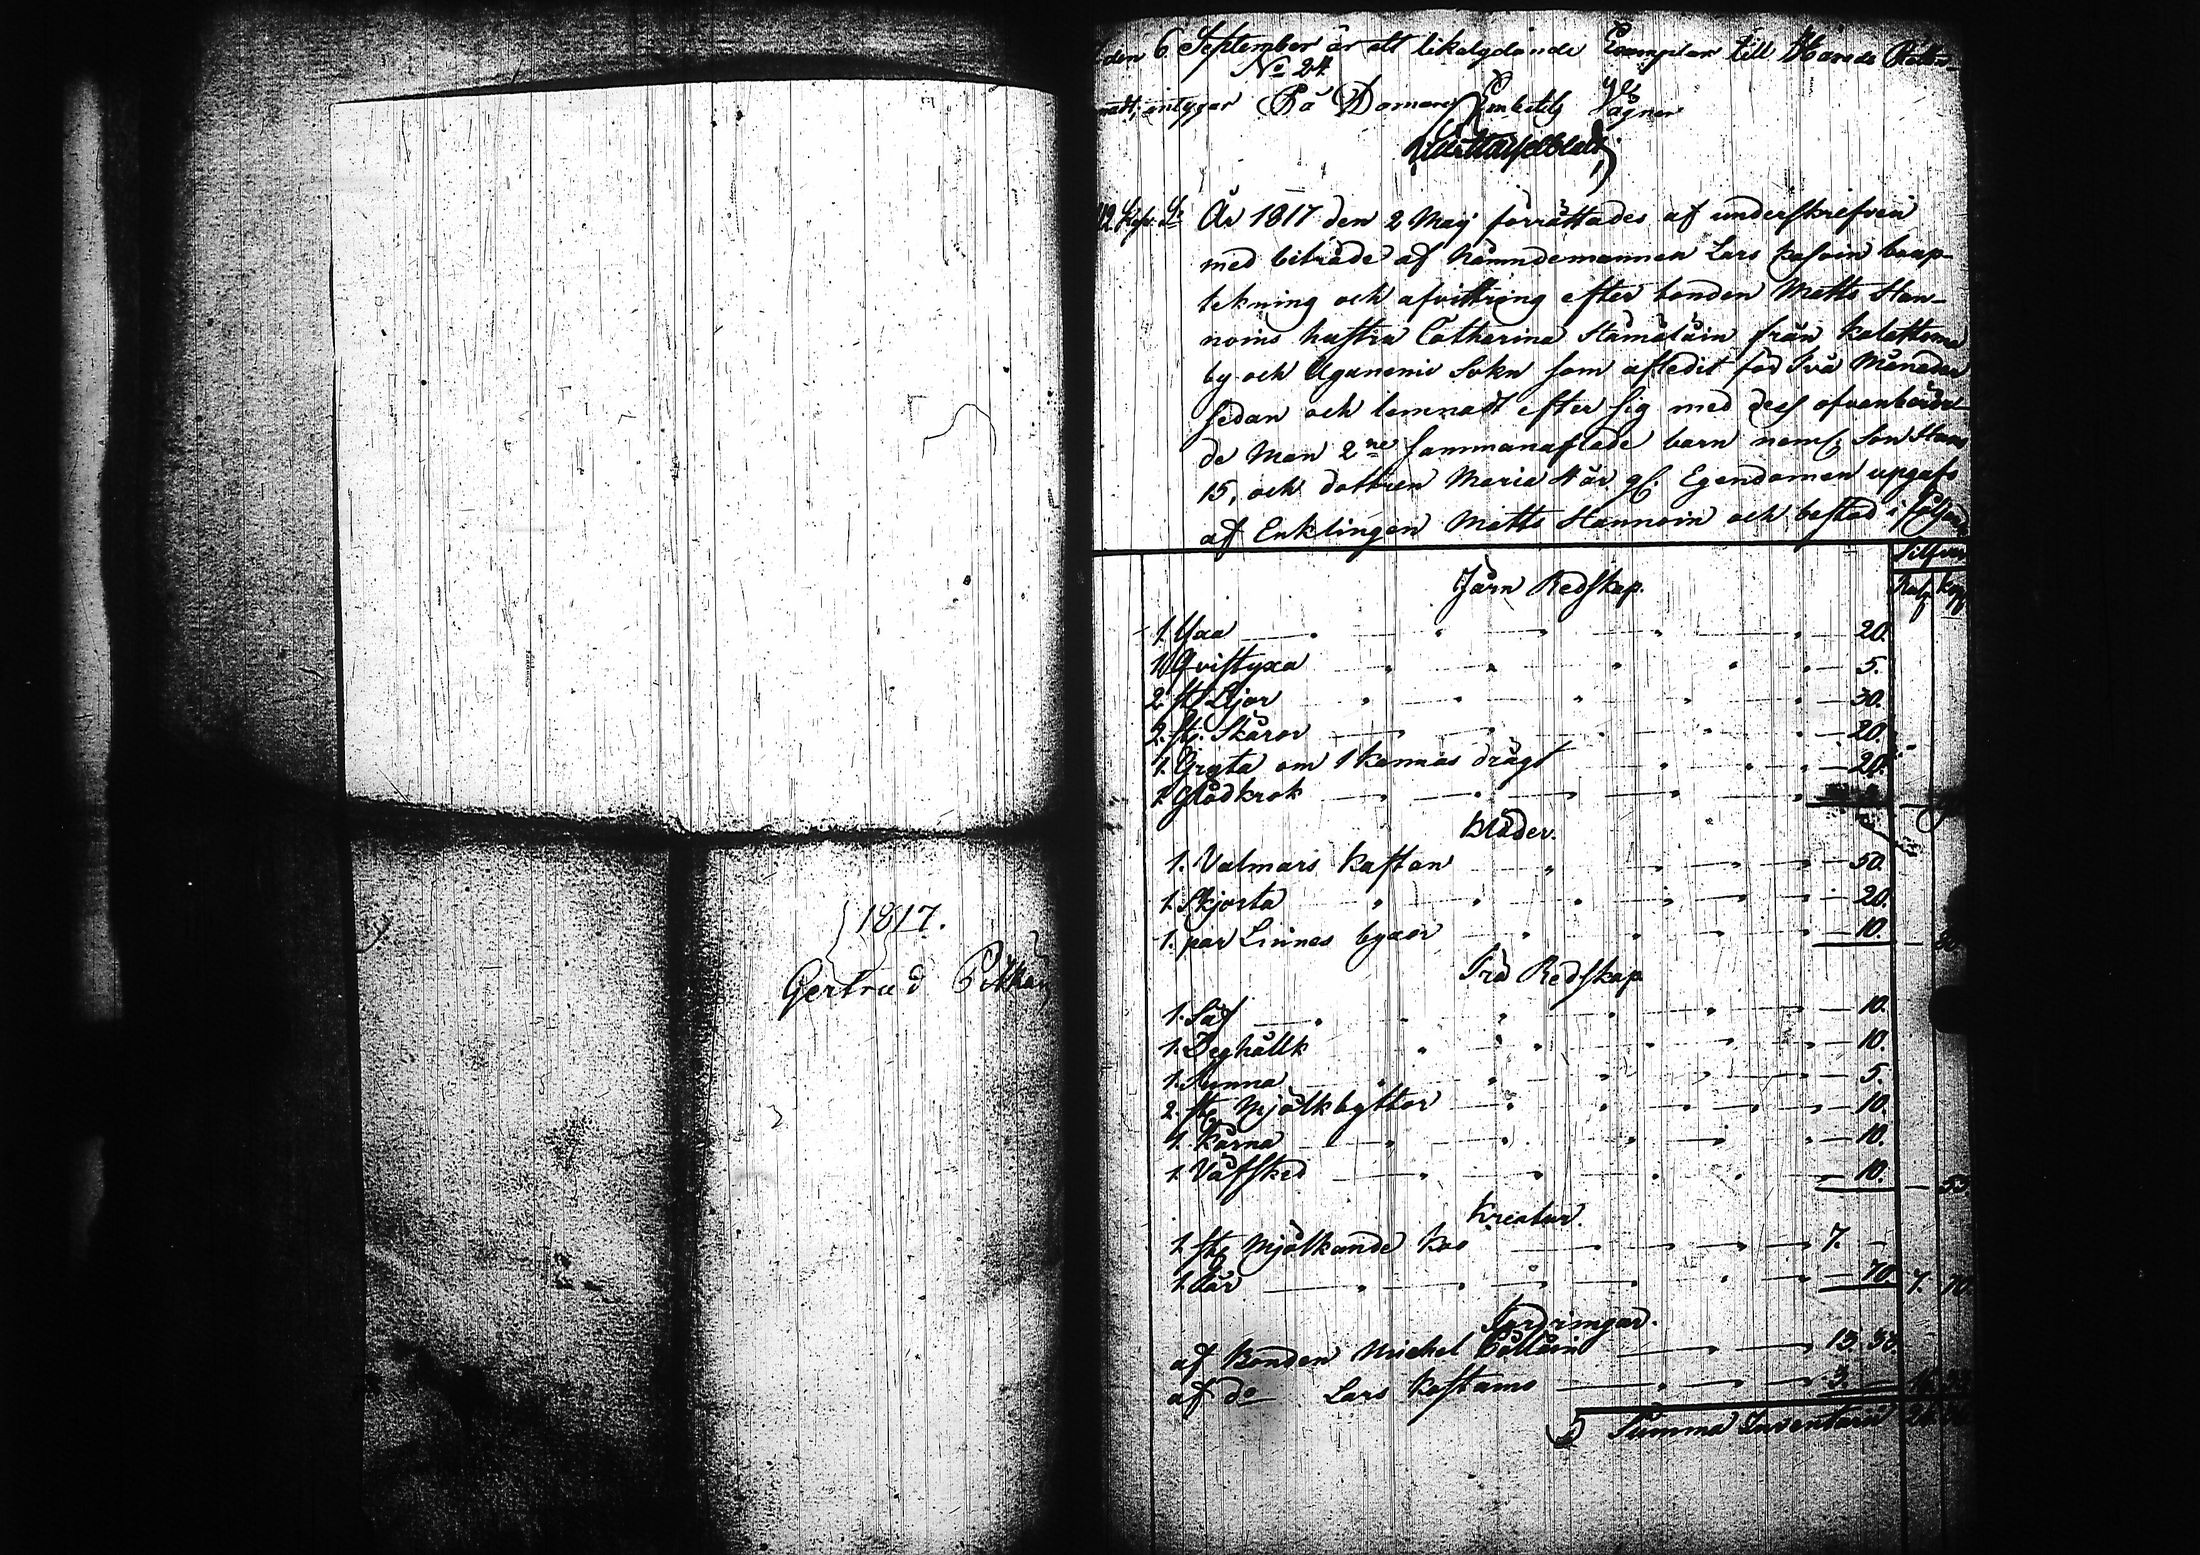 1817.
Gertrud
den 6 September är ett likalydande Exemplar till Härads Rätten
No 24.
intygar På Domare Embetets Vägnar
12 Sk
År 1817 den 2 Maij förrättades af underskrefven
med biträde af Nämndemannen Lars Kosoin boup-
tekning och afvittring efter bonden Matts Han-
noins hustru Catharina Hämäläin från Kalattoma
by och Uguniemi Sokn som afledit för två Månader
sedan och lemnadt efter sig med dess ofvanberör-
de Man 2ne sammanaflade barn neml. Son Hans
15, och dottren Maria 11 år gl. Egendomen upgafs
af Enklingen Matts Hannoin och bestod i följande
Silfver
Rubl. Kop.
Järn Redskap.
1. Yxa 20.
1. Qvistyxa 5.
2. st. Lijor 30.
2. st. Skäror 20.
1. Gryta om 1 kannas drägt 20.
1. Glödkrok
Kläder.
1. Valmars Kaftan 50.
1. Skjorta 20.
1. par Linnes byxor 10. 80
Trä Redskap
1. Så 10.
1. Deghållk 10.
1. Kunna 5.
2. st. Mjölkbyttor 10.
1. Kärna 10.
1. Väfsked 10. 55
Kreatur.
1. st. Mjölkande Ko 7. —
1. Får 70. 7. 70
Fordringar.
af Bonden Michel Pöllöin 13. 33.
af do Lars Kostamo 3.
Summa Inventarii